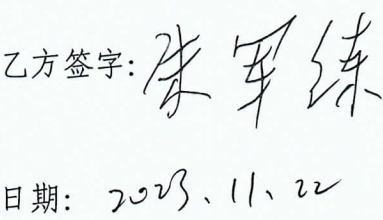 乙方签字: 朱军练
日期: 2023、11、22